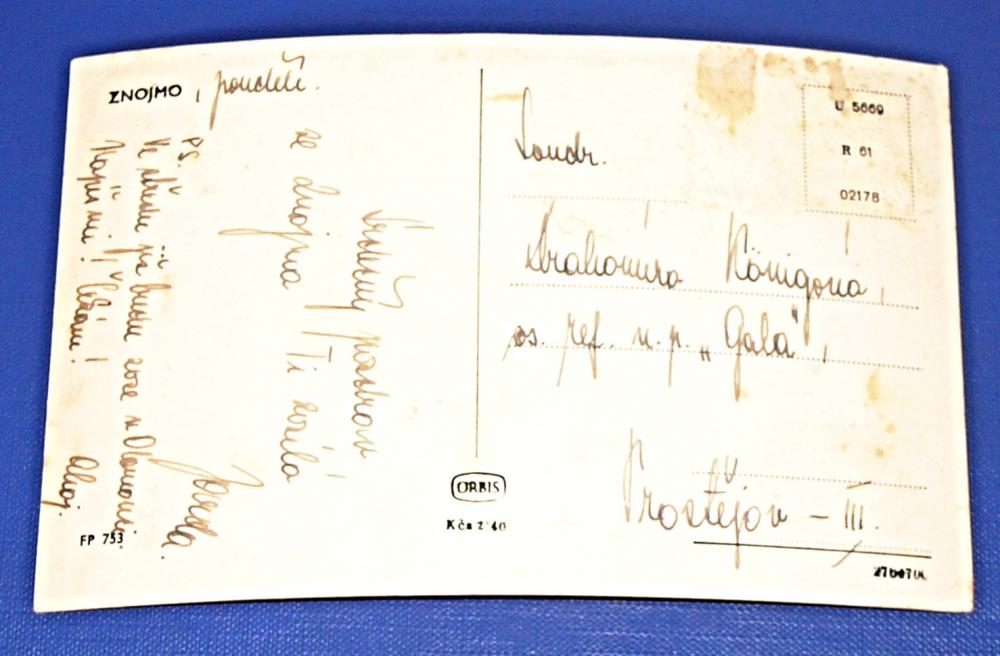 ZNOJMO, pondělí.
Srdečný pozdrav
ze Znojma Ti zasílá
Jarda.
P.S.
Ve středu již budu zase v Olomouci.
Napiš mi! Čekám!
Ahoj.
FP 753
ORBIS
Kčs 2·40
U 5669
R 61
02178
Soudr.
Drahomíra Königová,
os. ref. n. p. „Gala",
Prostějov – III.